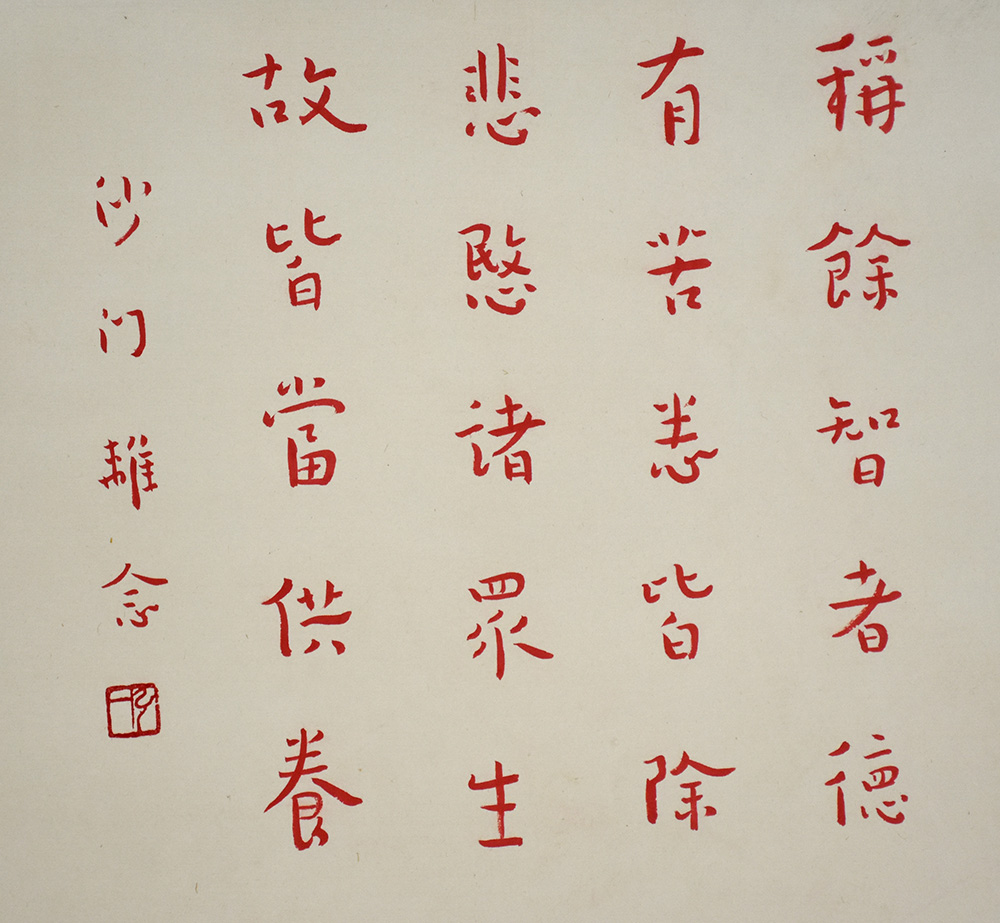 稱餘智者德
有苦悉皆除
悲愍諸眾生
故皆當供養
沙门離念
弘一